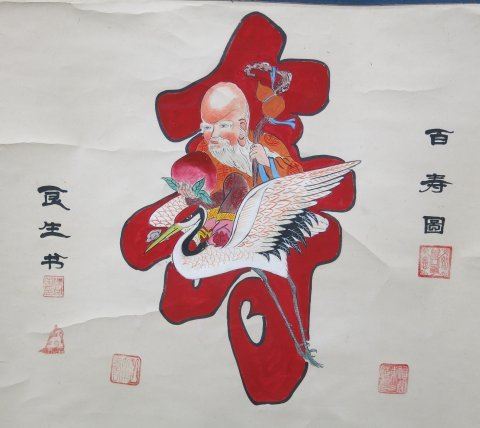 百寿圖
寿
良生书